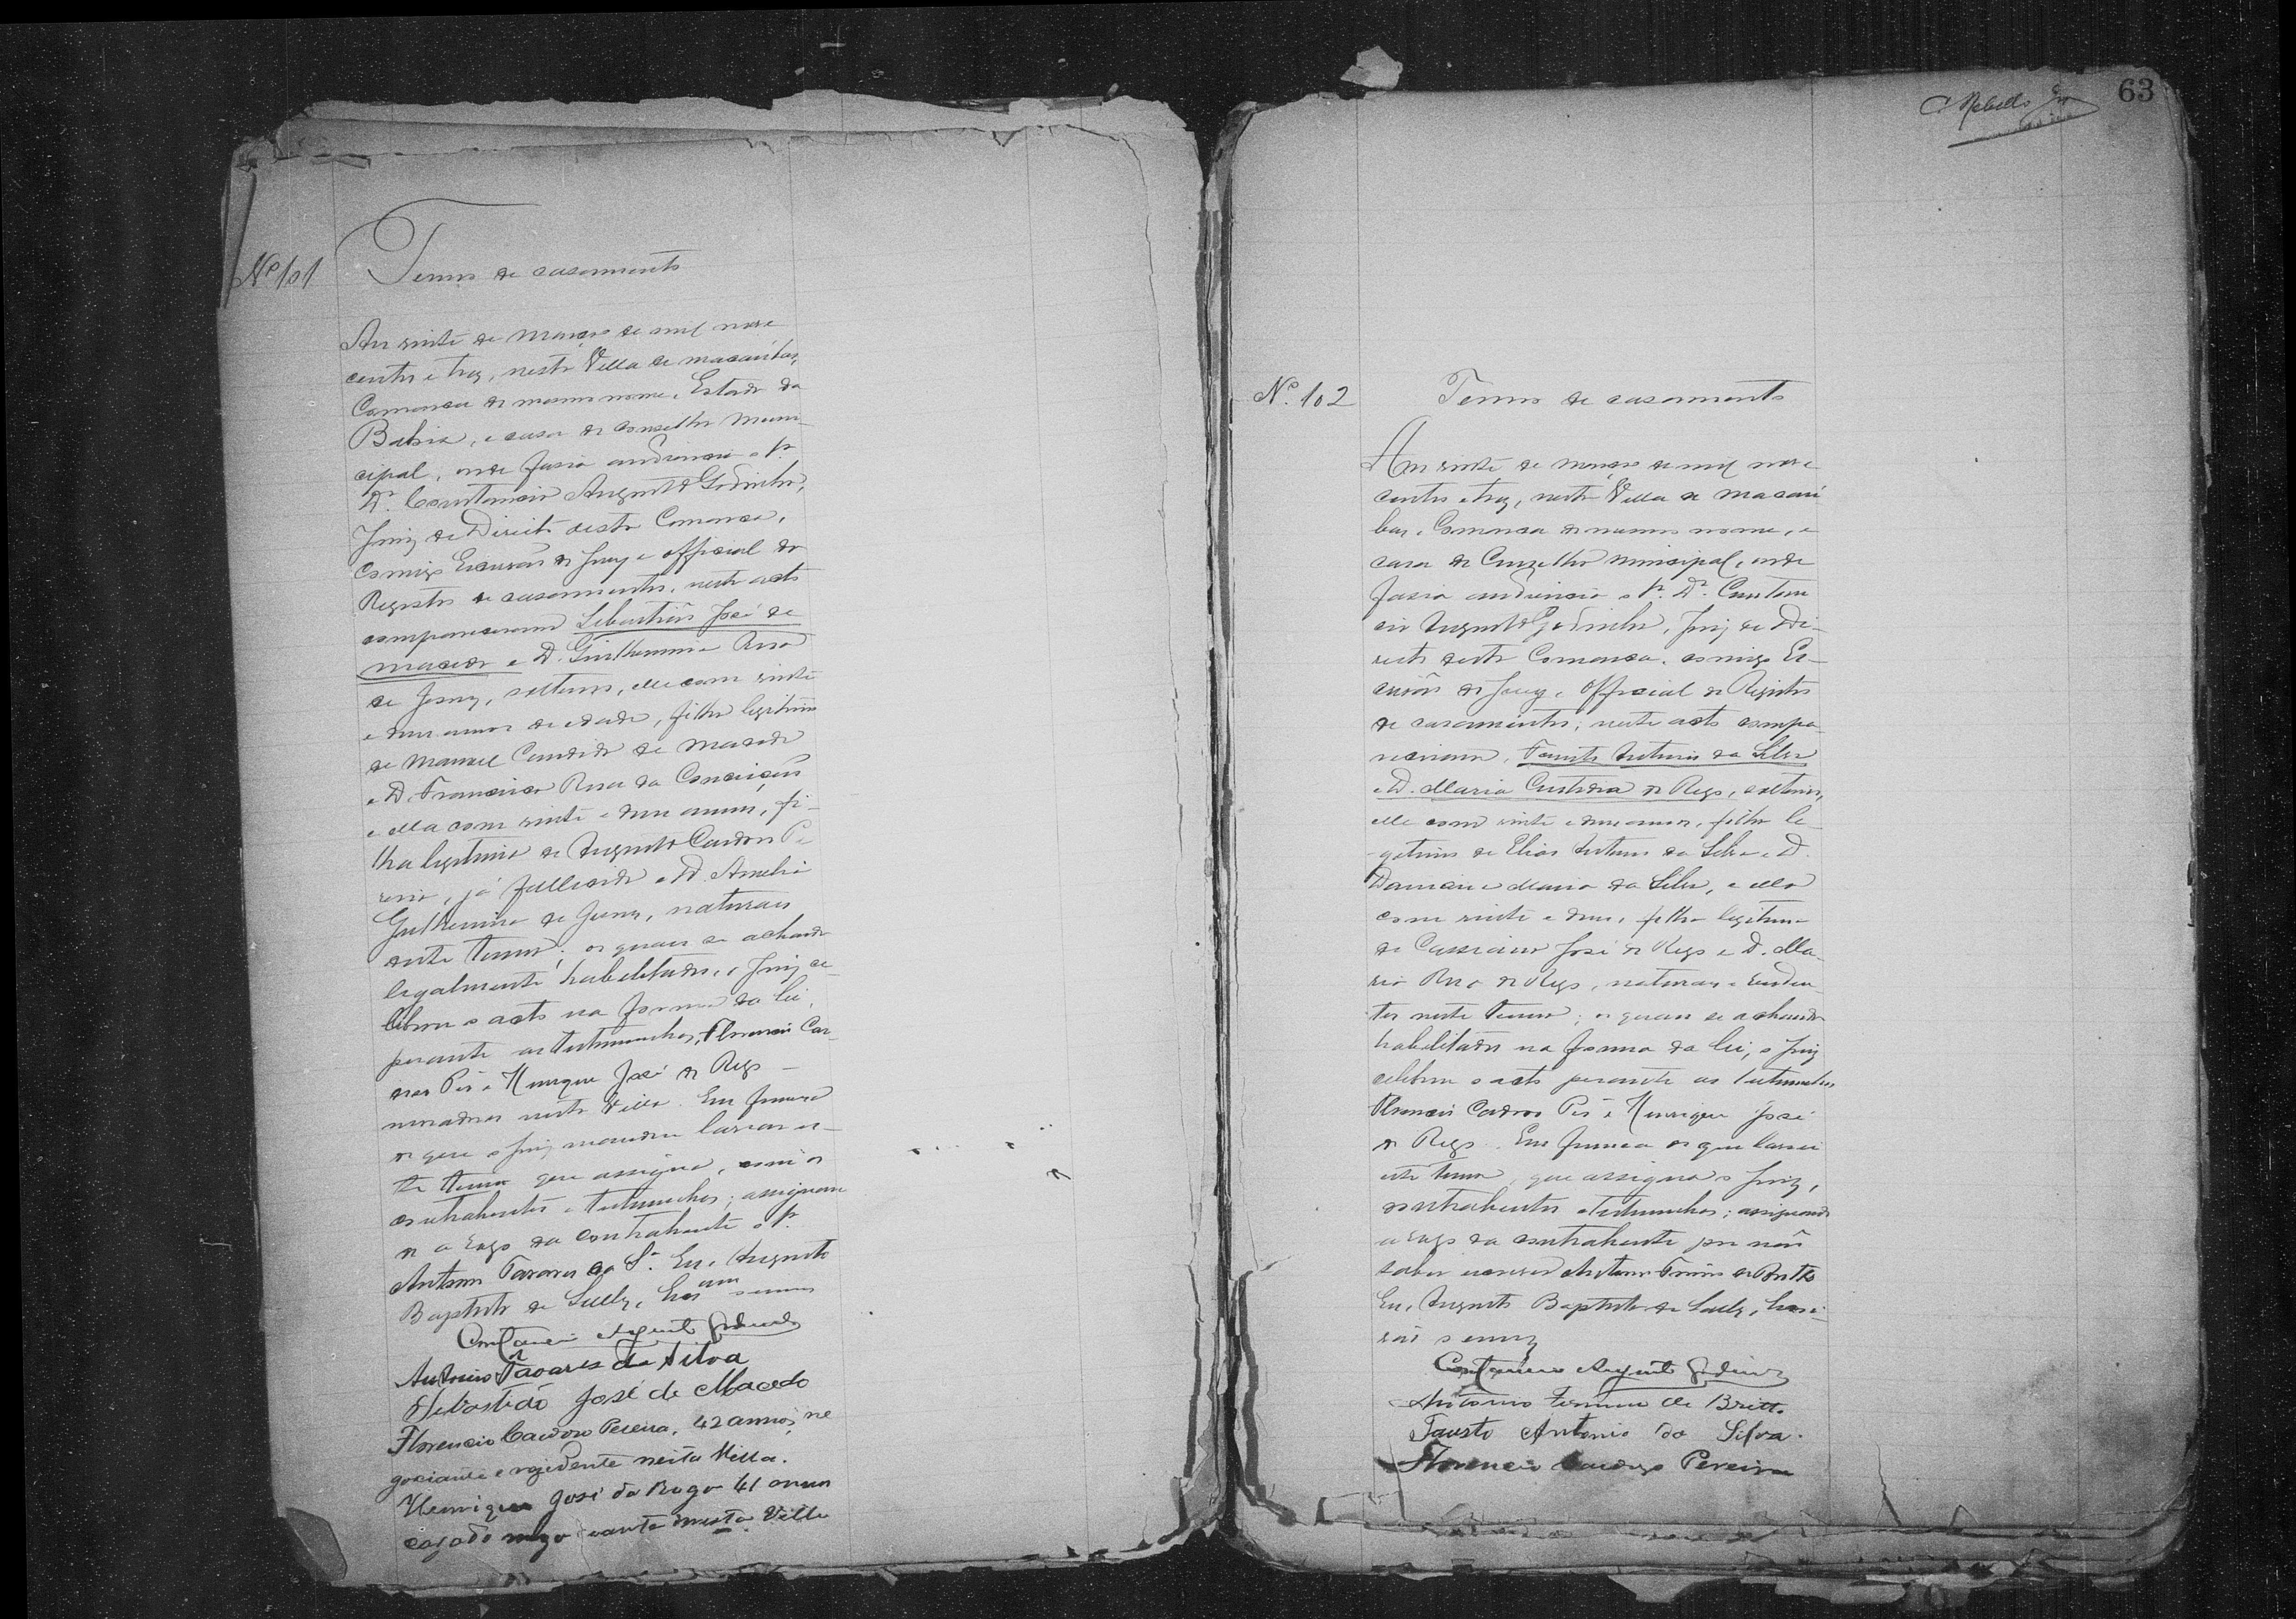 Nº 101
Termo de casamento
Aos vinte de março de mil nove
centos e trez, nesta Villa de Macaúbas,
Comarca do mesmo nome, Estado da
Bahia, e casa do conselho Muni
cipal, onde fasia audiencia o Sr.
Dr. Constancio Augusto Godinho,
Juiz de Direito desta Comarca,
comigo Escrivão do Jury e official do
Registro de casamentos, neste acto
compareceram Sebastião José de
Macedo e D. Guilhermina Rosa
de Jesus, solteiros, elle com vinte
e dous annos de edade, filho legitimo
de Manoel Candido de Macedo
e D. Francisca Rosa da Conceição
e ella com vinte e dous annos, fi-
lha legitima de Augusto Cardoso Pe
reira, já fallecido e D. Amelia
Guilhermina de Jesus, naturaes
deste termo; os quaes se achando
legalmente habilitados, o Juiz ce-
lebrou o acto na forma da lei,
perante as testemunhas, Florencio Car
doso Per.ª e Henrique José do Rego
moradores nesta Villa. Em firmeza
do que o Juiz mandou lavrar es-
te termo que assigna, com os
contrahentes e testemunhas; assignan
do a rogo da contrahente o Sr.
Antonio Tavares da S.ª Eu, Augusto
Baptista de Lelly, Escrivam o escrevi
Constancio Augusto Godinho
Antonio Tavares da Silva
Sebastião José de Macedo
Florencio Cardoso Pereira, 42 annos, ne
gociante e rezidente nesta Villa.
Henrique José do Rego 41 annos
cazado nego ciante nesta Villa
63
C Rebello Jor
Nº. 102
Termo de casamento
Aos vinte de março de mil nove
centos e trez, nesta Villa de Macaú
bas, Comarca do mesmo nome, e
casa do Conselho Municipal, onde
fasia audiencia o Sr. Dr. Constan
cio Augusto Godinho, Juiz de Di-
reito desta Comarca, comigo Es-
crivão do Jury e official do Registro
de casamentos; neste acto compa
receram, Fausto Antonio da Silva
e D. Maria Custodia do Rego, solteiros,
elle com vinte e dous annos, filho le-
gitimo de Elias Antonio da Silva e D.
Damiana Maria da Silva, e ella
com vinte e dous, filha legitima
de Cassiano José do Rego e D. Ma-
ria Rosa do Rego, naturaes e residen
tes neste termo; os quaes se achando
habilitados na forma da lei, o Juiz
celebrou o acto perante as testemunhas
Florencio Cardoso Per.ª e Henrique José
do Rego. Em firmeza do que lavrei
este termo, que assigna o Juiz,
contrahentes e testemunhas; assignando
a rogo da contrahente por não
saber escrever Antonio Firmino de Britto
Eu, Augusto Baptista de Lelly, Escri-
vão o escrevi
Constancio Augusto Godinho
Antonio Firmino de Britto
Fausto Antonio da Silva.
Florencio Cardozo Pereira